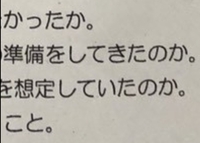 かったか。
準備をしてきたのか。
を想定していたのか。
こと。